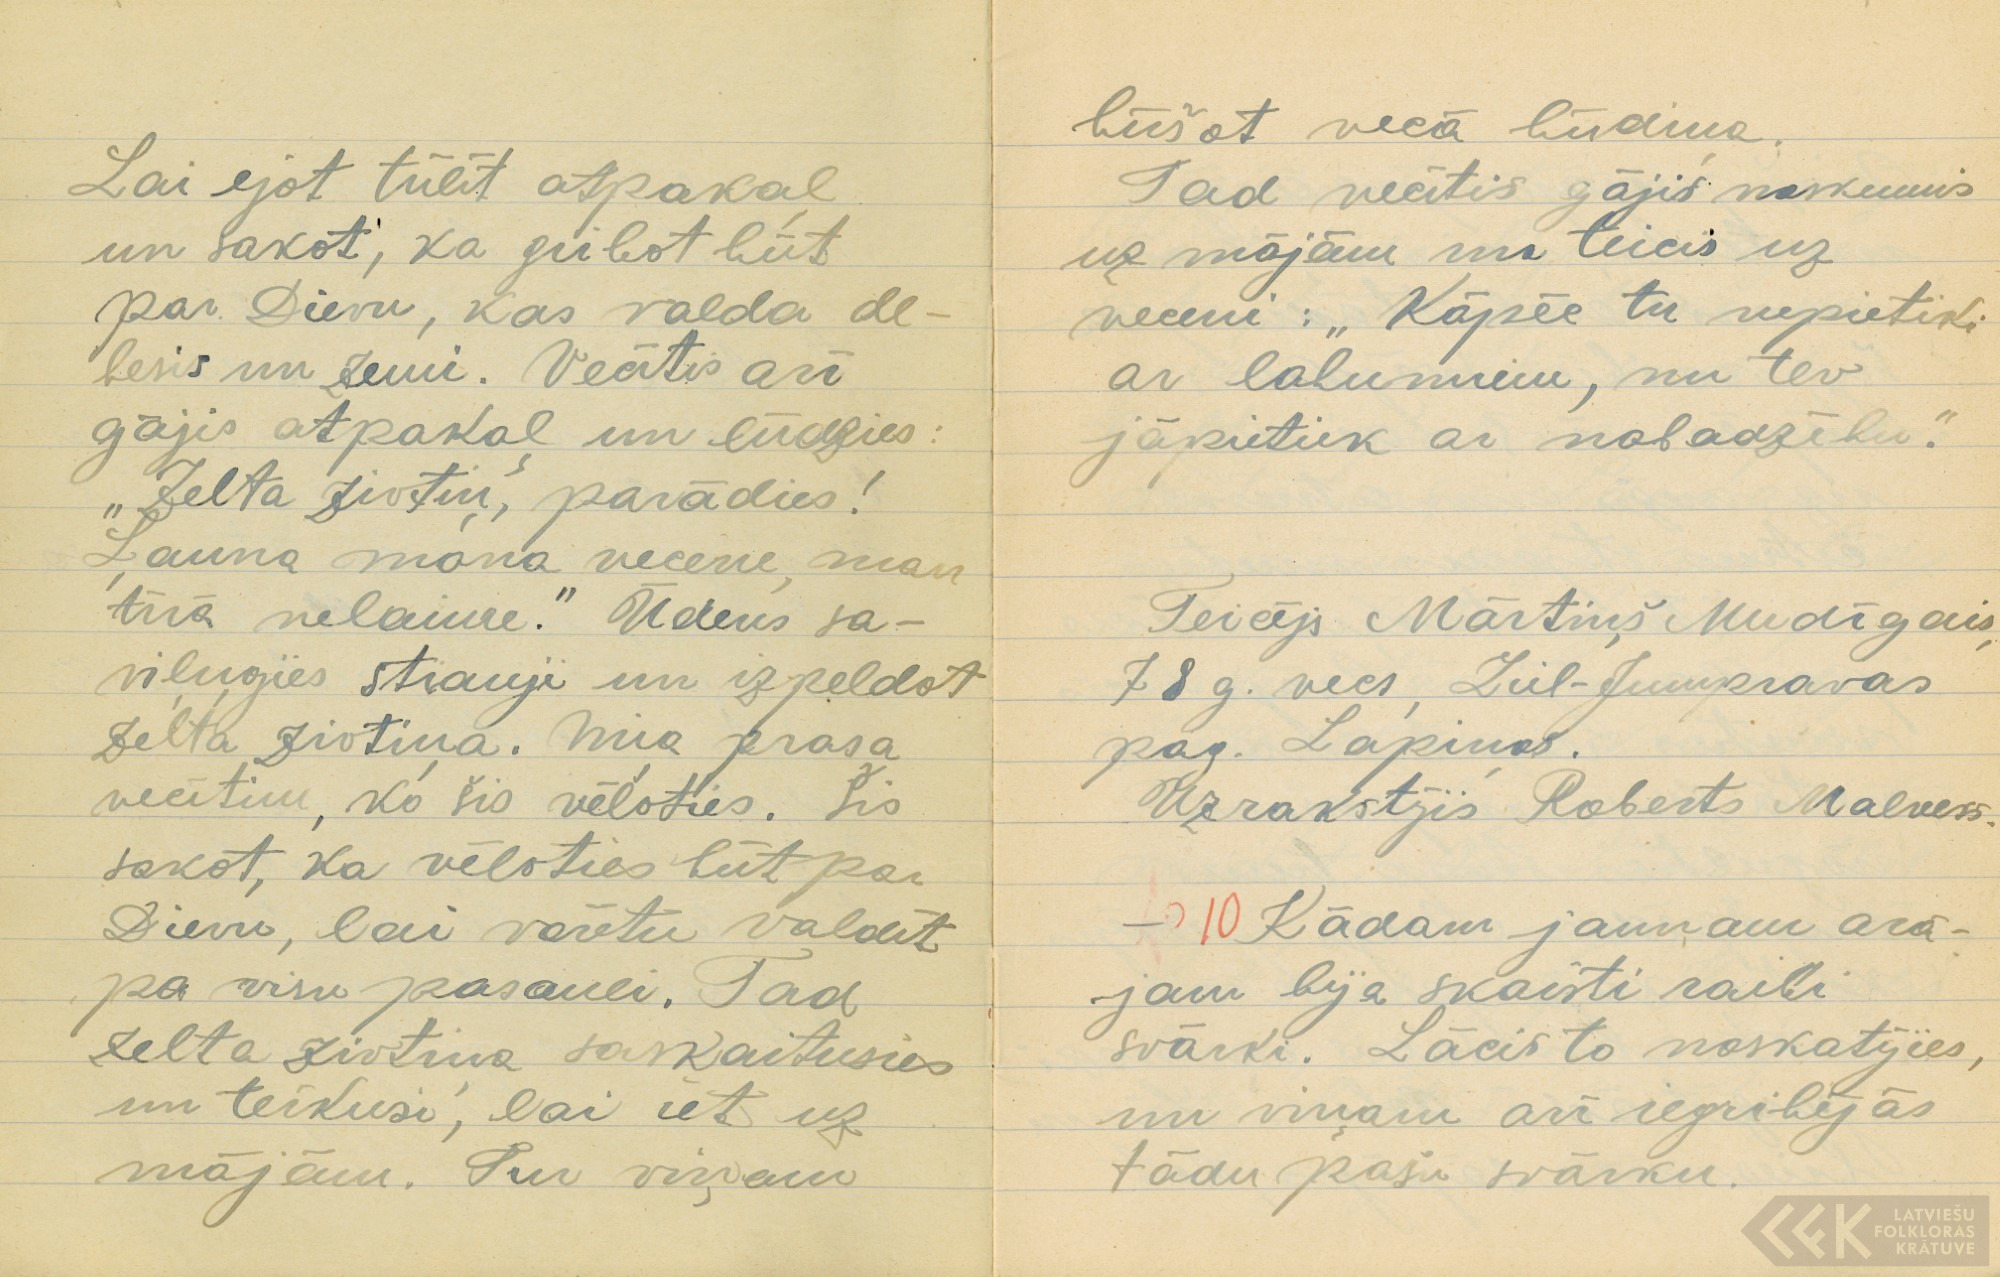 Lai ejot tūlīt atpakaļ
un sakot, ka gribot būt
par Dievu, kas valda de-
besis un zemi. Vecītis arī
gājis atpakaļ un lūdzies:
„Zelta zivtiņ, parādies!
Ļauna mana vecene, man
tīrā nelaime." Ūdens sa-
viļņojies strauji un izpeldot
zelta zivtiņa. Viņa prasa
vecītim, ko šis vēloties. Šis
sakot, ka vēloties būt par
Dievu, lai varētu valdīt
pa visu pasauli. Tad
zelta zivtiņa saskaitusies
un teikusi, lai iet uz
mājām. Tur viņam
būšot vecā būdiņa.
Tad vecītis gājis noskumis
uz mājām un teicis uz
veceni: „Kāpēc tu nepietiki
ar labumiem, nu tev
jāpietiek ar nabadzību."
Teicējs Mārtiņš Mudīgais,
78 g. vecs, Liel-Jumpravas
pag. Lapiņas.
Uzrakstījis Roberts Malvess.
— 10 Kādam jaunam arā-
jam bija skaisti raibi
svārki. Lācis to noskatījies,
un viņam arī iegribējās
tādu pašu svārku.
LATVIEŠU
FOLKLORAS
KRĀTUVE